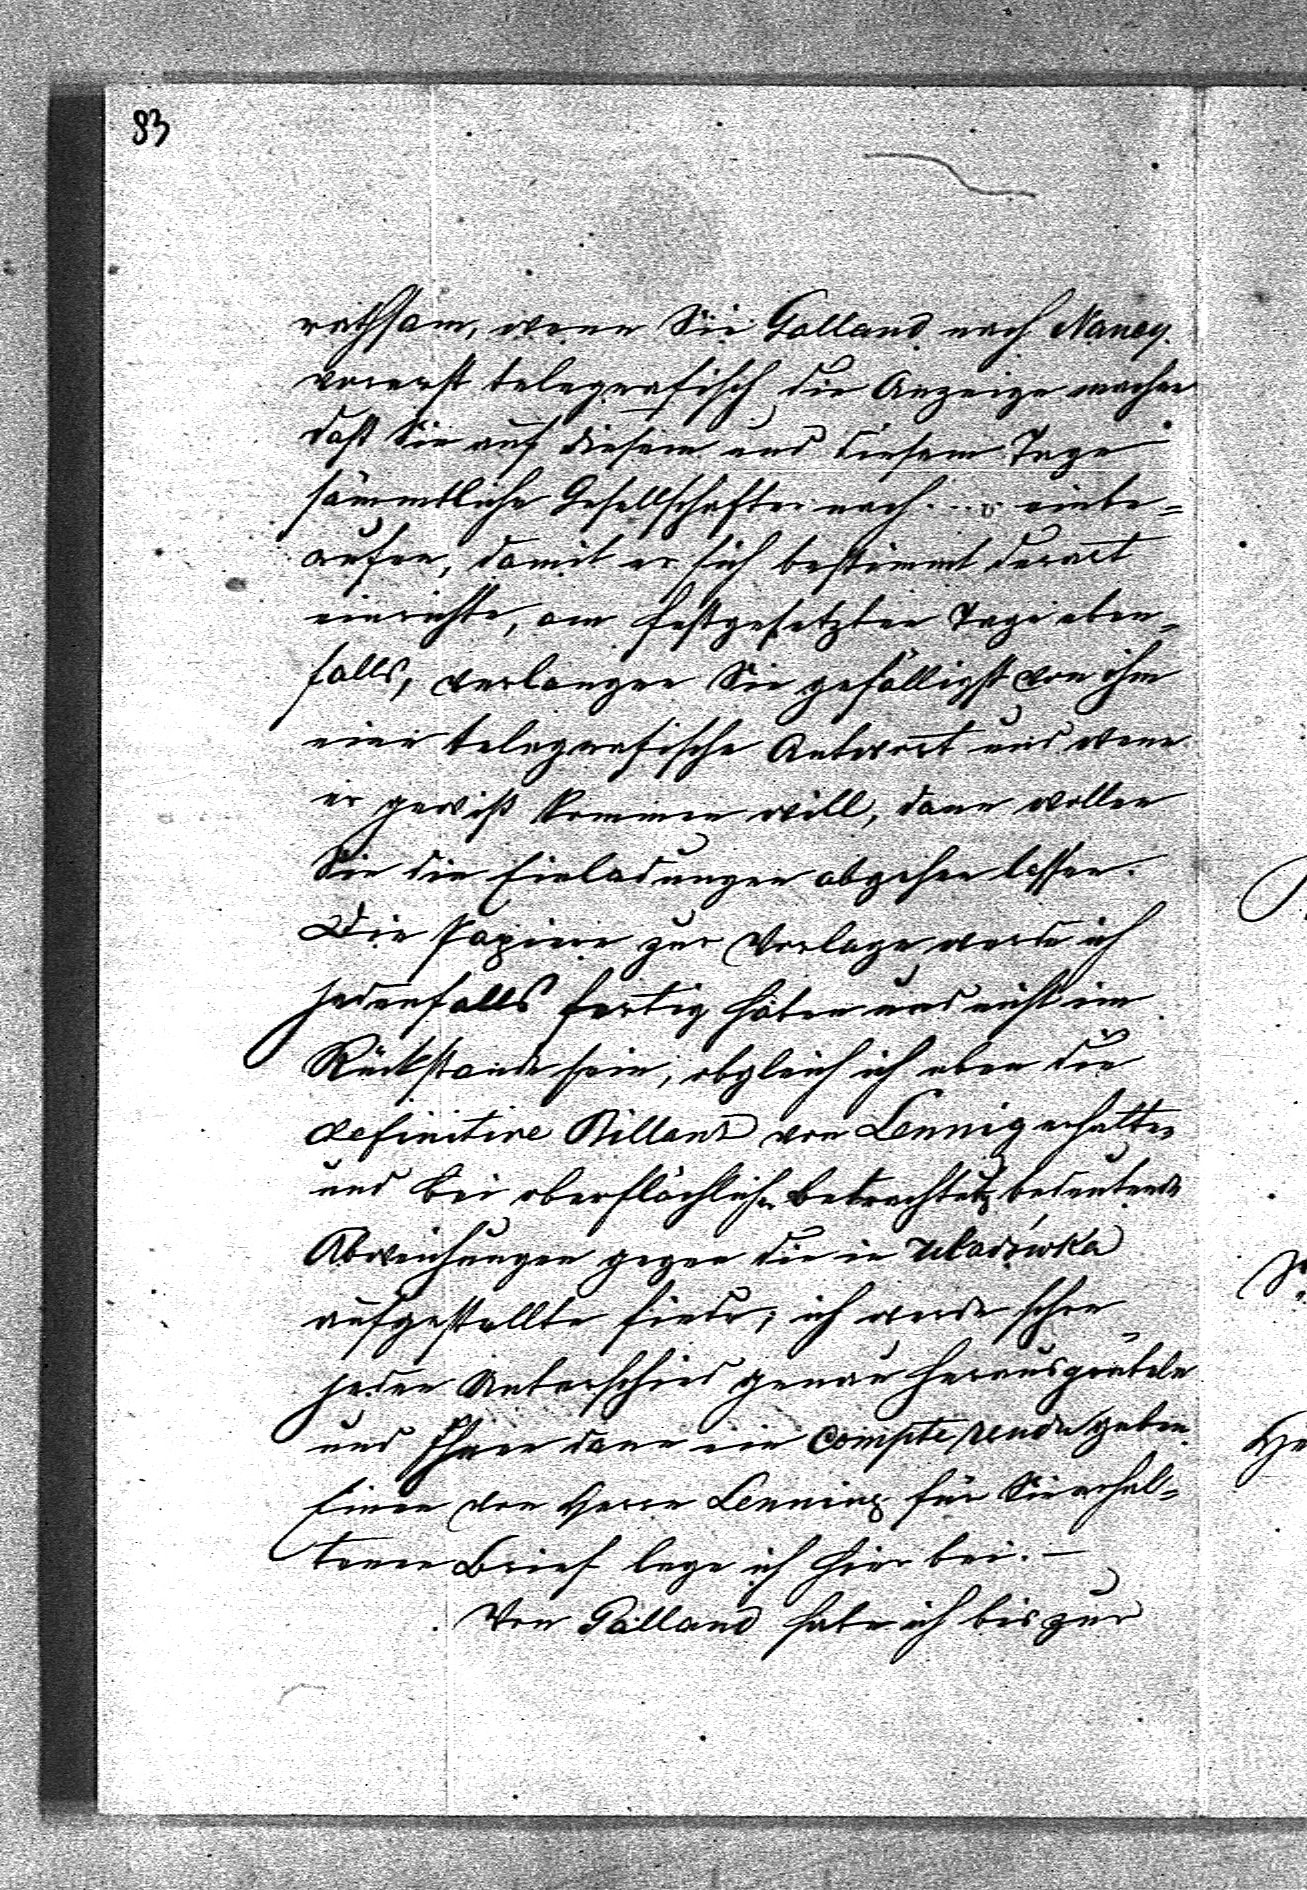 83
rathsam, wenn Sie Galland nach Nancy
vorerst telegrafisch die Anzeige machen
daß Sie auf diesem und diesem Tage
sämmtliche Gesellschafter nach . . . einbe=
rufen, damit er sich bestimmt derart
einrichte, am festgesetzten Tage eben=
falls, verlangen Sie gefälligst von ihm
eine telegrafische Antwort und wenn
er gewiß kommen will, dann wollen
Sie die Einladungen abgehen lassen.
Die Papiere zur Vorlage werde ich
jedenfalls fertig haben und nicht im
Rückstande sein, obgleich ich eben die
definitive Billanz von Lennig erhalten
und bei oberflächlicher Betrachtung bedeutende
Abweichungen gegen die in Uladówka
aufgestellte finde; ich werde schon
jeden Unterschied genau herausgrübeln
und Ihnen dann ein compte rendu geben.
Einen von Herrn Lennig für Sie erhal=
tenen Brief lege ich hier bei. —
Von Galland habe ich bis zur